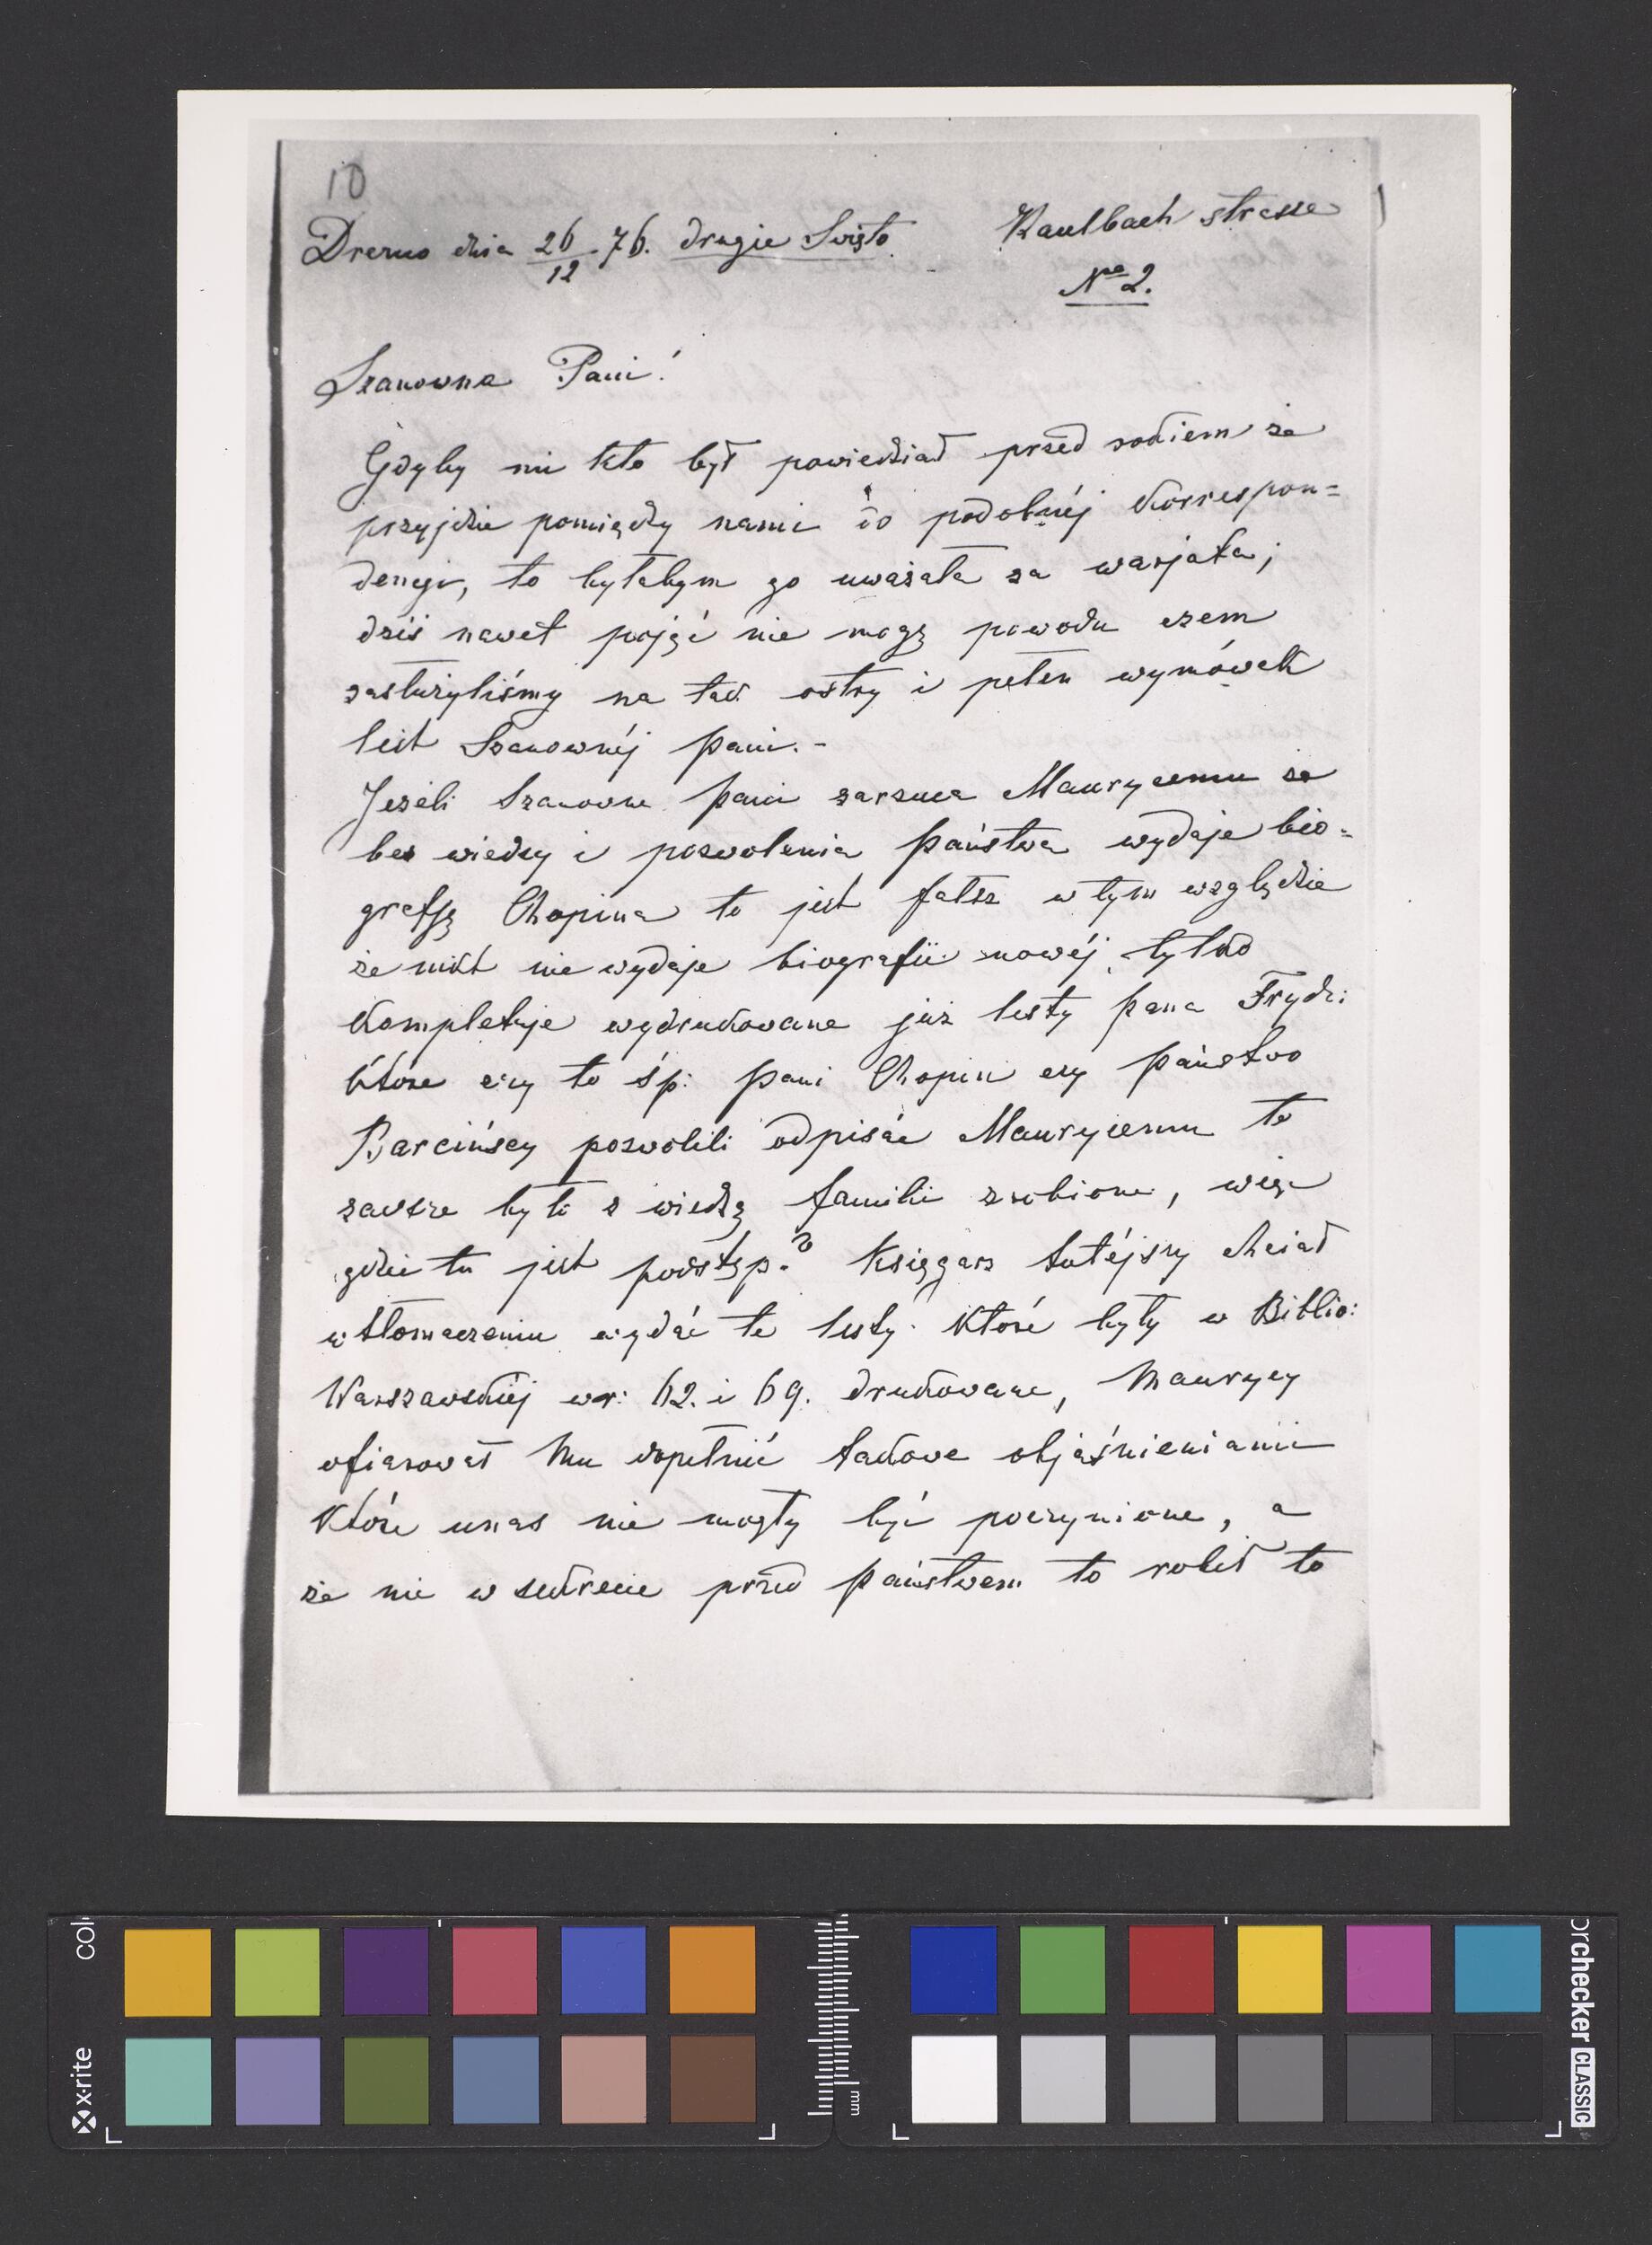 10
Drezno dnia 26/12 76. drugie Swięto Kaulbach strasse
No 2.
Szanowna Pani!
Gdyby mi kto był powiedział przed rokiem że
przyjdzie pomiędzy nami do podobnéj korrespon=
dencji, to byłabym go uważała za warjata;
dziś nawet pojąć nie mogę powodu czem
zasłużyliśmy na tak ostry i pełen wymówek
list Szanownéj pani. -
Jeżeli Szanowna pani zarzuca Maurycemu że
bez wiedzy i pozwolenia państwa wydaje bio=
grafję Chopina to jest fałsz w tym względzie
że nikt nie wydaje biografii nowéj tylko
kompletuje wydrukowane już listy pana Fryd:
które czy to śp: pani Chopin czy państwo
Barcińscy pozwolili odpisać Maurycemu to
zawsze było z wiedzą familii zrobione, więc
gdzie tu jest podstęp? Księgarz tutéjszy chciał
w tłomaczeniu wydać te listy które były w Biblio:
Warszawskiéj w r: 62. i 69. drukowane, Maurycy
ofiarował Mu dopełnić takowe objaśnieniami
które u nas nie mogły być poczynione, a
że nie w sekrecie przed państwem to robił to
x-rite
col
mm
orchecker CLASSIC